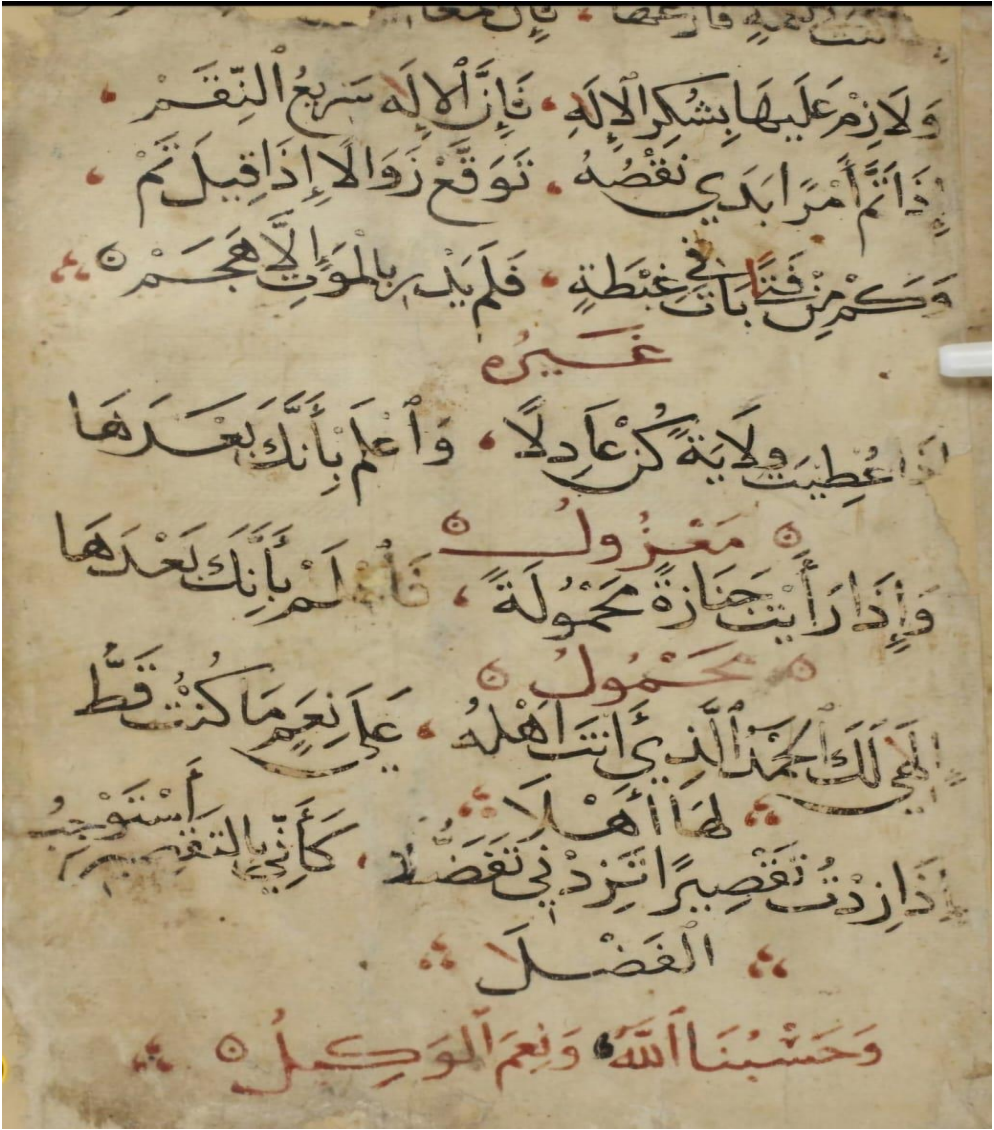 وَلَازِمْ عَلَيهَا بِشُكرِ الْإلَهِ ، فَإِنَّ ٱلإلَه سَرِيعُ ٱلنِّقَمْ ،
إِذَا تَمَّ أَمْرًا بَدَي نَقْصُهُ ، تَوَقَّعْ زَوَالًا إِذَا قِيلَ تَمْ ،
وَكمْ مِنْ فَتًا بَاتَ فِي غِبْطَةٍ ، فَلَم يَدرِ بالمَوتِ إلَّا هَجَمْ
غَيرُه
اذَا اعُطِيتَ وِلَايَةً كُن عَادِلًا ، وَٱعْلَم بِأَنَّكَ بَعْدَهَا
مَعْزُولُ
وَإِذَا رَأَيْتَ جَنَازةً مَحْمُولَةً ، فَٱعْلَمْ بِأَنَّكَ بَعْدَهَا
مَحْمُولُ
إِلَهِي لَكَ ٱلحَمْدُ ٱلَّذِي أَنتَ اَهْلهُ ، عَلَى نِعَمٍ مَا كُنْتُ قَطُّ
لهَا أَهْلَا
إِذَا زِدْتُ تَقْصِيرًا تَزِدْنِي تَفَضُّلًا ، كَأَنِّي بِالتَقْصِيرِ أَسْتَوْجِبُ
الفَضْلَ
وَحَسْبُنَا ٱللَّهُ وَنِعمَ ٱلوَكِيلُ